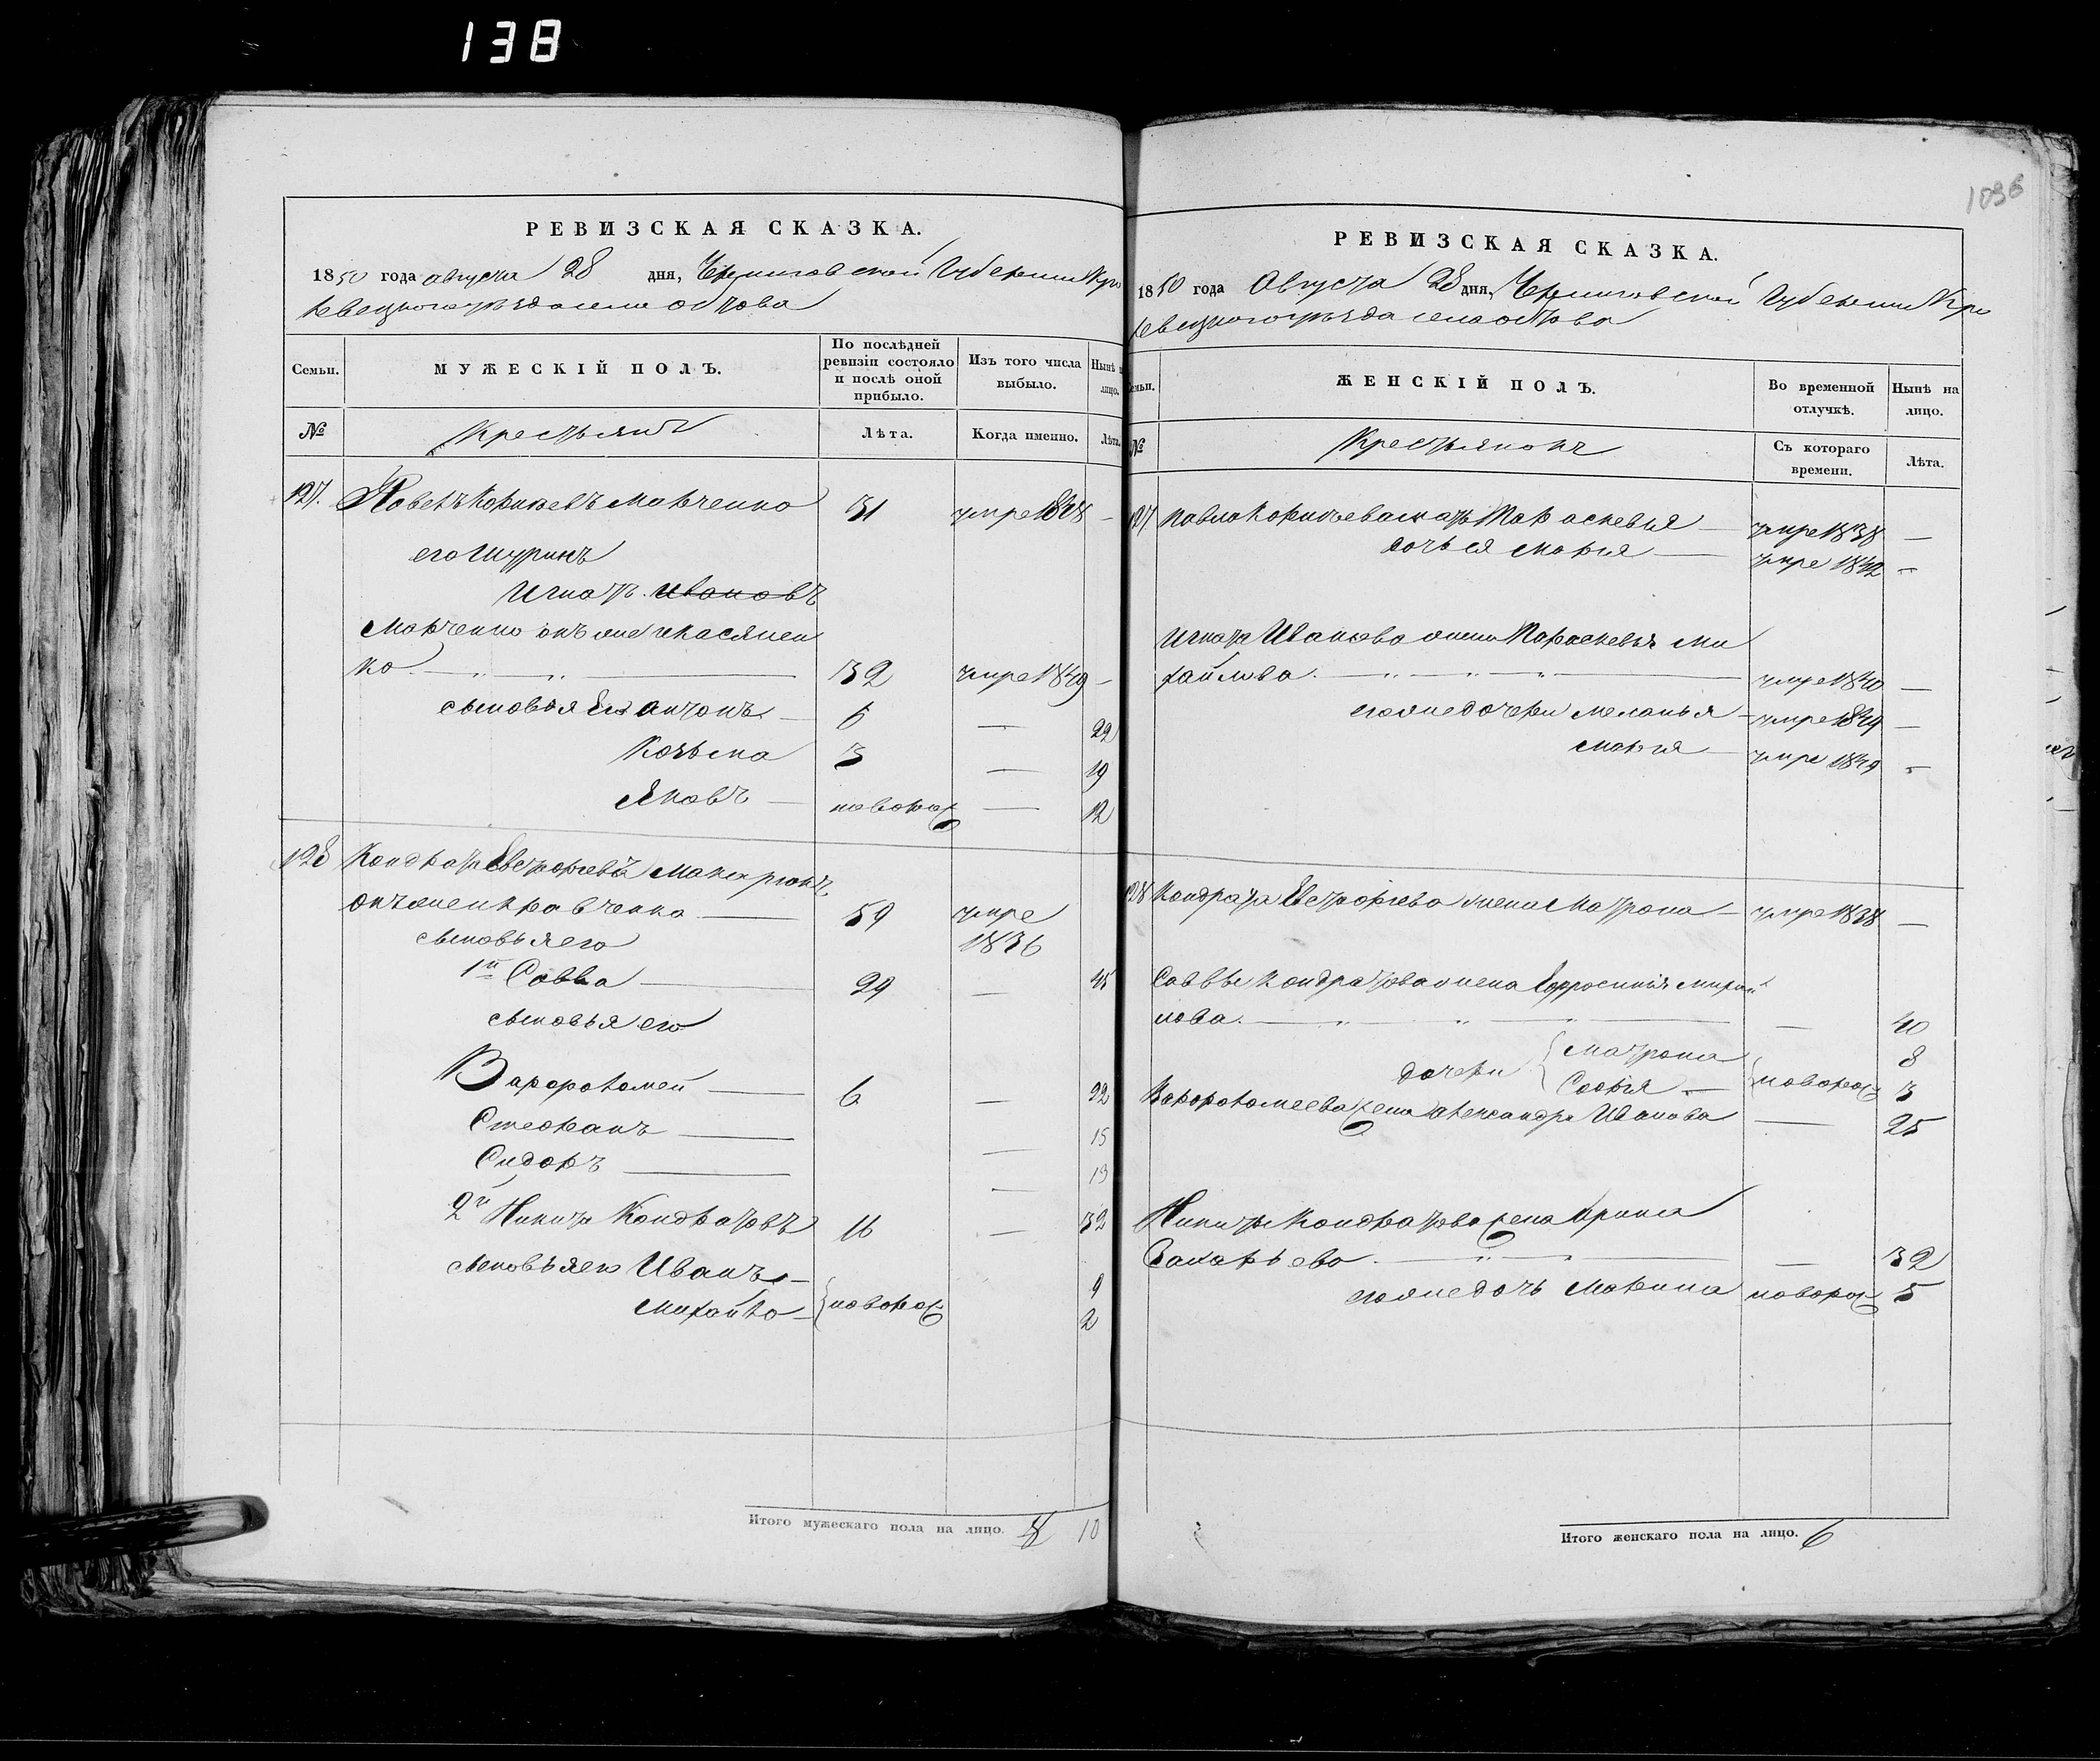 138
РЕВИЗСКАЯ СКАЗКА.
1850 года августа 28 дня, Черниговской Губернии Кро
левецкого уезда села Обтова
Семьи.
МУЖЕСКІЙ ПОЛЪ.
По послѣдней ревизіи состояло и послѣ оной прибыло.
Изъ того числа выбыло.
Нынѣ лицо.
№
Крестьянъ
Лѣта.
Когда именно.
Лѣта.
127. Павелъ Марченко 31 умре —
его Шуринъ
Игнатъ Ивановъ
Марченко онъ же и Касянен
ко 32 умре 1849 —
сыновья его Антонъ — 22
Козьма 3 — 19
Яковъ — новорож — 12
128 Кондратъ
онъ же и Кравченко — 59 умре
сыновья его 1836
1й Савва — 29 — 45
сыновья его
Варфоломей — 6 — 22
Стефанъ — — 15
Сидоръ — — 13
2й Никита Кондратовъ 16 — 32
сыновья его Иванъ — 9
Михайло — новорож 2
Итого мужескаго пола на лицо. 8 10
1096
РЕВИЗСКАЯ СКАЗКА.
1850 года Августа 28 дня, Черниговской Губернии Кро
левецкого уезда села Обтова
Семьи.
ЖЕНСКІЙ ПОЛЪ.
Во временной отлучкѣ.
Нынѣ на лицо.
№
Крестьянокъ
Съ котораго времени.
Лѣта.
127 Павла мать Параскевья — умре 1838 —
дочь ея Марья — умре 1842 —
Игната Иванова жена Параскевья Ми
хайлова. — умре 1840 —
его же дочери Меланья — умре 1849 —
Марья — умре 1849 —
128 Кондрата жена Матрона — умре 1838 —
Саввы Кондратова жена Ефросинья
нова. — — 40
дочери Матрона 8
Софья — новорож 3
Варфоломеева жена Александра Иванова — 25
Никиты Кондратова жена Ирина
Захарьева. — — 32
его же дочь Марина новорож 5
Итого женскаго пола на лицо. 6